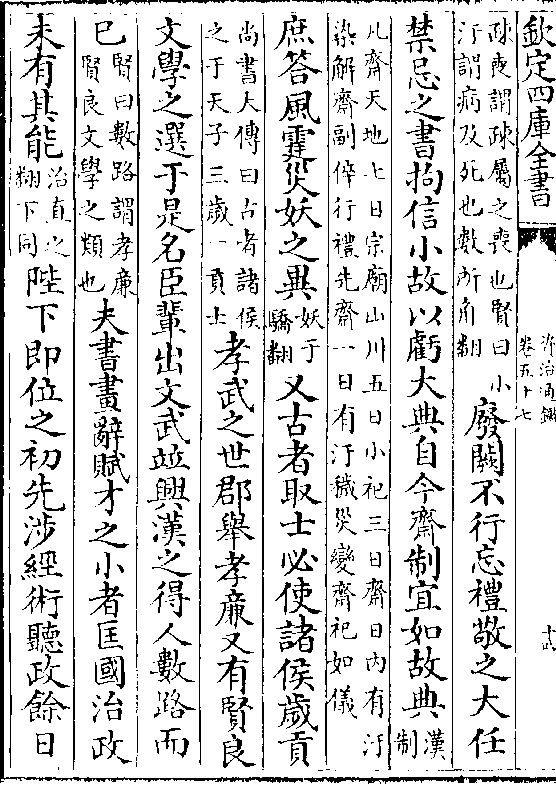 欽定四庫全書
資治通鑑
卷五十七
疎喪謂疎屬之喪也賢曰小
汙謂病及死也數所角翻
廢闕不行忘禮敬之大任
禁忌之書拘信小故以虧大典自今齋制宜如故典
漢
制
凡齋天地七日宗廟山川五日小祀三日齋日内有汙
染解齋副倅行禮先齋一日有汙穢災變齋祀如儀
庶答風霆災妖之異
妖于
驕翻
又古者取士必使諸侯歲貢
尚書大傳曰古者諸侯
之于天子三歲一貢士
孝武之世郡舉孝廉又有賢良
文學之選于是名臣輩出文武並興漢之得人數路而
已
賢曰數路謂孝廉
賢良文學之類也
夫書畫辭賦才之小者匡國治政
未有其能
治直之
翻下同
陛下即位之初先涉經術聽政餘日